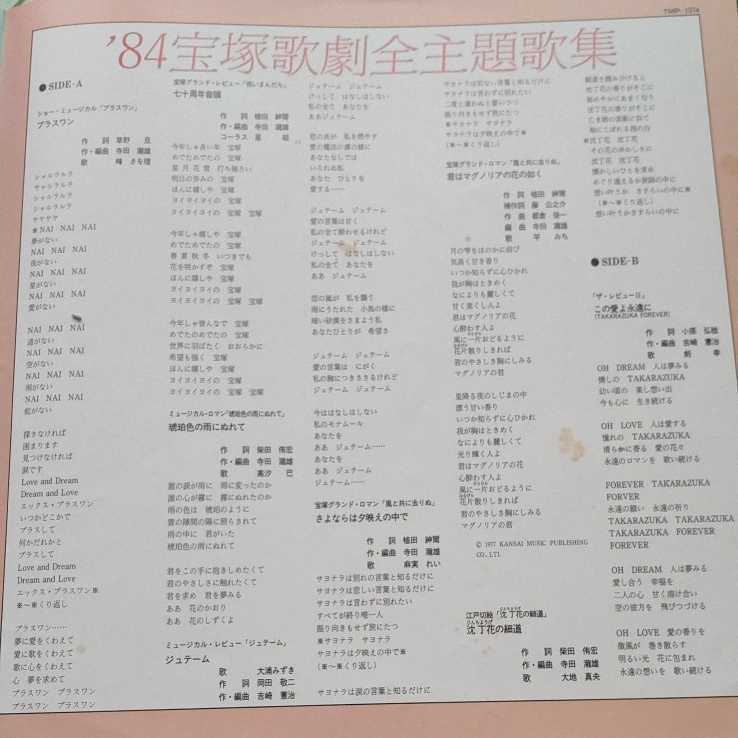 TMP-1374
'84宝塚歌劇全主題歌集
●SIDE-A
ショー・ミュージカル「プラスワン」
プラスワン
作 詞 草野 旦
作・編曲 寺田 瀧雄
歌 峰 さを理
シャルラルラ
サャルラルラ
シャルラルラ
シャルラルラ
ヤヤヤヤ
※NAI NAI NAI
夢がない
NAI NAI NAI
夜がない
NAI NAI NAI
星がない
NAI NAI NAI
愛がない
NAI NAI NAI
道がない
NAI NAI NAI
空がない
NAI NAI NAI
雨がない
NAI NAI NAI
虹がない
探さなければ
困まります
見つけなければ
涙です
Love and Dream
Dream and Love
エックス・プラスワン
いつかどこかで
プラスして
何かだれかと
プラスして
Love and Dream
Dream and Love
エックス・プラスワン※
※～※くり返し
プラスワン……
夢に愛をくわえて
愛に歌をくわえて
歌に心をくわえて
心 夢を求めて
プラスワン プラスワン
プラスワン プラスワン
宝塚グランド・レビュー「祝いまんだら」
七十周年音頭
作 詞 植田 紳爾
作・編曲 寺田 瀧雄
コーラス 星 組
今年しゃ良い年 宝塚
めでためでたの 宝塚
星 月 花 雪 打ち揃さい
明日の歩みの 宝塚
ほんに嬉しや 宝塚
ヨイヨイヨイの 宝塚
ヨイヨイヨイの 宝塚 宝塚
今年しゃ嬉しや 宝塚
めでためでたの 宝塚
春 夏 秋 冬 いつきても
花を咲かすぞ 宝塚
ほんに嬉しや 宝塚
ヨイヨイヨイの 宝塚
ヨイヨイヨイの 宝塚 宝塚
今年しゃ皆んなで 宝塚
めでためでたの 宝塚
世界に羽ばたく おおらかに
希望も強く 宝塚
ほんに嬉しや 宝塚
ヨイヨイヨイの 宝塚
ヨイヨイヨイの 宝塚 宝塚
ミュージカル・ロマン「琥珀色の雨にぬれて」
琥珀色の雨にぬれて
作 詞 柴田 侑宏
作・編曲 寺田 瀧雄
歌 高汐 巴
誰の涙が雨に 雨に変ったのか
誰の心が霧に 霧にぬれたのか
雨の色は 琥珀のように
雲の隙間の陽に照らされて
雨の中に 君がいた
琥珀色の雨にぬれて
君をこの手に抱きしめたくて
君のやさしさに触れたくて
君を求め 君を夢みる
ああ 花のかおり
ああ 花のしずくよ
ミュージカル・レビュー「ジュテーム」
ジュテーム
歌 大浦みずき
作 詞 岡田 敬二
作・編曲 吉崎 憲治
ジュテーム ジュテーム
けっして はなしはしない
私の全て あなたを
ああジュテーム
君の炎が 私を燃やす
愛の魔法の虜の様に
あなたなしでは
いられぬ私
あなた ひとりを
愛する……
ジュテーム ジュテーム
愛の言葉は甘く
私の全て酔わせるけれど
ジュテーム ジュテーム
けっして はなしはしない
私の全て あなたを
ああ ジュテーム
恋の嵐が 私を襲う
雨にうたれた 小鳥の様に
暗い砂漠をさまよう私
あなたひとりが 希望さ
ジュテーム ジュテーム
愛の言葉は にがく
私の胸につきささるけれど
ジュテーム ジュテーム
今ははなしはしない
私のモナムール
あなたを
ああ ジュテーム……
あなたを
ああ ジュテーム
ジュテーム……
宝塚グランド・ロマン「風と共に去りぬ」
さよならは夕映えの中で
作 詞 植田 紳爾
作・編曲 寺田 瀧雄
歌 麻実 れい
サヨナラは別れの言葉と知るだけに
サヨナラは悲しい言葉と知るだけに
サヨナラは言わずに別れたい
すべてが終り唯一人
振り向きもせず旅にたつ
※サヨナラ サヨナラ
サヨナラは夕映えの中で※
(※～※くり返し)
サヨナラは涙の言葉と知るだけに
サヨナラは切ない言葉と知るだけに
サヨナラは言わずに別れたい
二度と還れぬと誓いつつ
振り向きもせず旅にたつ
※サヨナラ サヨナラ
サヨナラは夕映えの中で
(※～※くり返し)
宝塚グランド・ロマン「風と共に去りぬ」
君はマグノリアの花の如く
作 詞 植田 紳爾
補作詞 藤 公之介
作 曲 都倉 俊一
編 曲 寺田 瀧雄
歌 平 みち
月の雫をほのかに浴び
気高く甘き香り
いつか知らずに心ひかれ
我が胸はときめく
なによりも麗しくて
甘く楽しく人よ
君はマグノリアの花
心酔わす人よ
風に一片おどるように
花片散りしきれば
君のやさしさ胸にしみる
マグノリアの君
星降る夜のしじまの中
漂う甘い香り
いつか知らずに心ひかれ
我が胸はときめく
なによりも麗しくて
光り輝く人よ
君はマグノリアの花
心酔わす人よ
風に一片おどるように
花片散りしきれば
君のやさしさ胸にしみる
マグノリアの君
© 1977 KANSAI MUSIC PUBLISHING
CO., LTD.
江戸切絵「沈丁花の細道」
沈丁花の細道
作 詞 柴田 侑宏
作・編曲 寺田 瀧雄
歌 大地 真央
沈丁花の香りがそこに
沈丁花の香りがそこに
※沈丁花 沈丁花
その花のあかしみに
沈丁花 沈丁花
懐かしいひとを求め
(※～※くり返し)
想い叶うかさすらいの中に
●SIDE-B
「ザ・レビューII」
この愛よ永遠に
(TAKARAZUKA FOREVER)
作 詞 小原 弘稔
作・編曲 吉崎 憲治
歌 剣 幸
OH DREAM 人は夢みる
憧しの TAKARAZUKA
幼い頃の 楽し想い出
今も心に 生き続ける
OH LOVE 人は愛する
憧れの TAKARAZUKA
清らかに香る 愛の花々
永遠のロマンを 歌い続ける
FOREVER TAKARAZUKA
FORVER
永遠の願い 永遠の祈り
TAKARAZUKA TAKARAZUKA
TAKARAZUKA FOREVER
FOREVER
OH DREAM 人は夢みる
愛し合う 幸福を
二人の心 甘く溶け合い
空の彼方を 飛びつづける
OH LOVE 愛の香りを
微風が 巻き散らす
明るい光 花に包まれ
永遠の想いを 歌い続ける